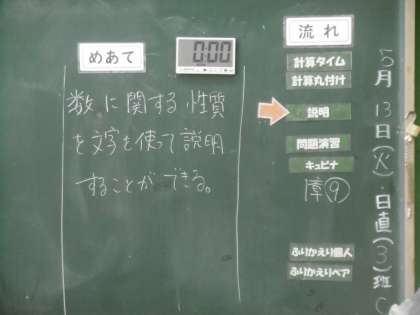 めあて
0:00
数に関する性質
を文字を使って説明
することができる。
流れ
計算タイム
計算丸付け
説明
問題演習
キュビナ
障⑨
ふりかえり個人
ふりかえりペア
5月13日(火)日直(3)班